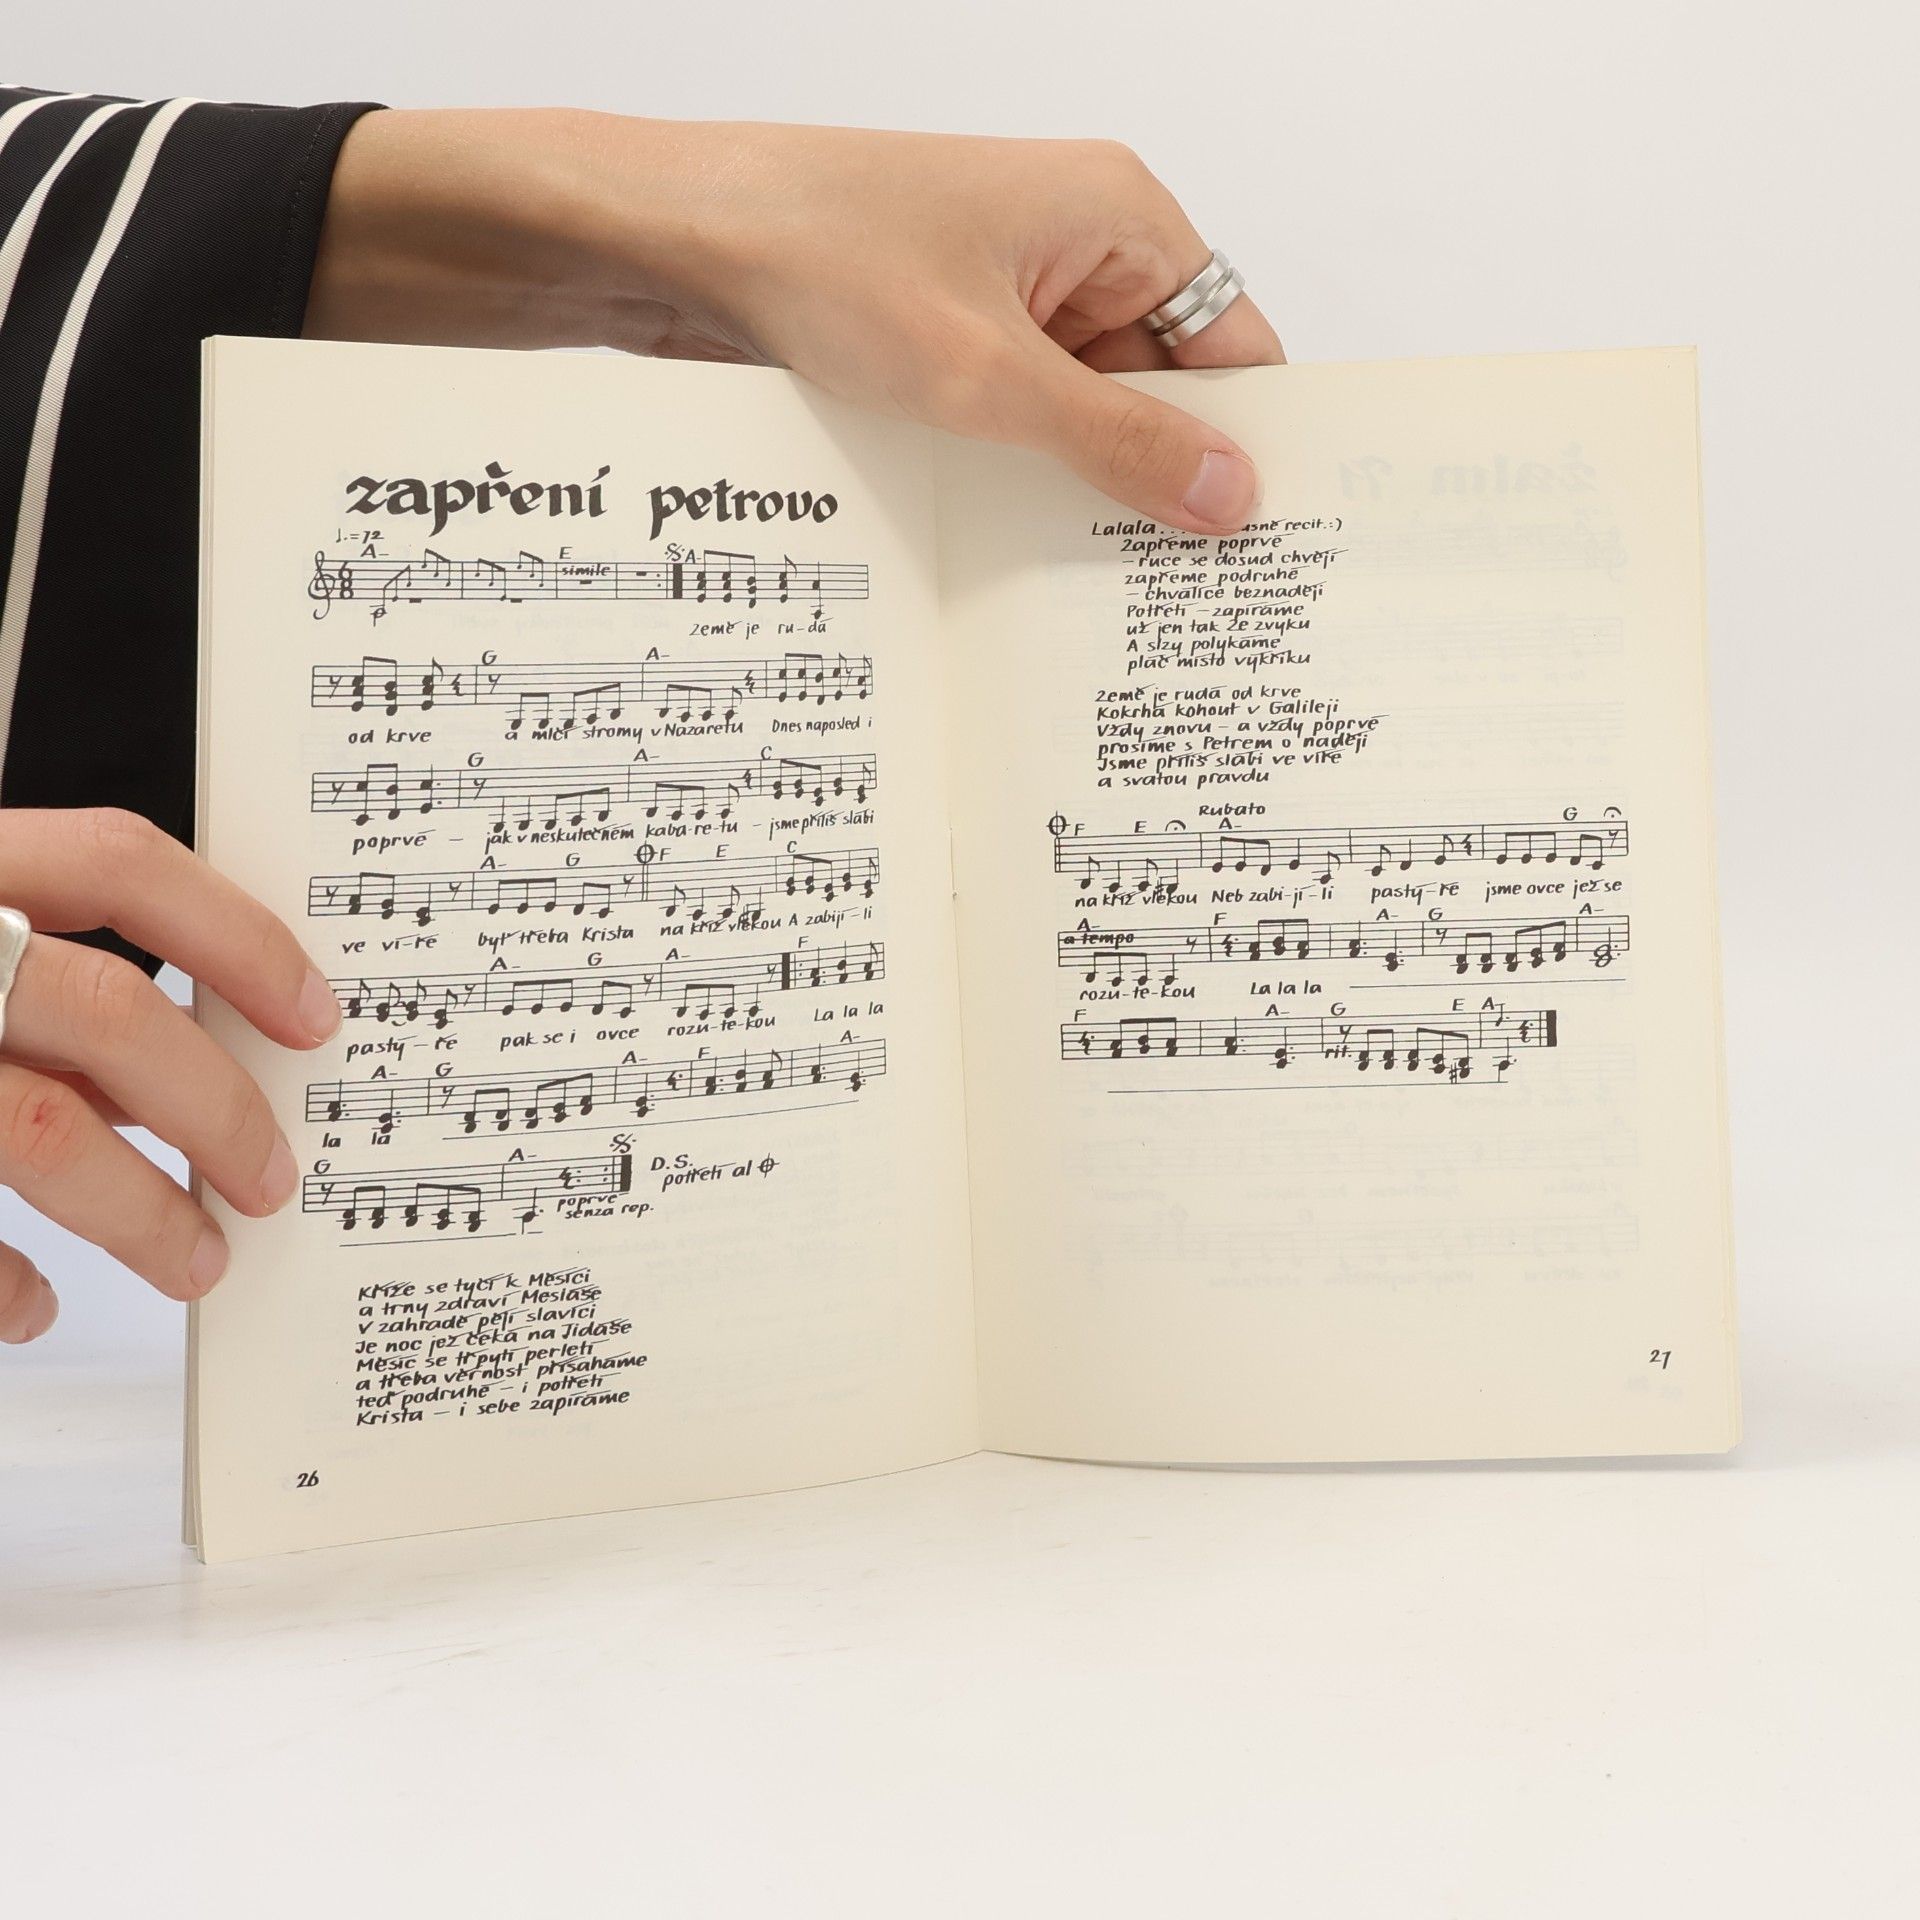 zapření petrovo
♩.=72
A- E simile A-
země je ru-dá
G A-
od krve a mlčí stromy v Nazaretu Dnes naposled i
G A- C
poprvé – jak v neskutečném kaba-re-tu – jsme příliš slabí
A- G F E C
ve ví-ře být třeba Krista na kříž vlekou A zabíjí-li
A- G A- F
pastý-ře pak se i ovce rozu-te-kou La la la
A- G A- F A-
la la
G A- D.S.
poprvé potřetí al
senza rep.
Kříže se tyčí k Měsíci
a trny zdraví Mesiáše
V zahradě pějí slavíci
Je noc jež čeká na Jidáše
Měsíc se třpytí perletí
a třeba věrnost přísaháme
teď podruhé – i potřetí
Krista – i sebe zapíráme
26
Lalala... recit.:)
Zapřeme poprvé
– ruce se dosud chvějí
zapřeme podruhé
– chválíce beznaději
Potřetí – zapíráme
už jen tak ze zvyku
A slzy polykáme
pláč místo výkřiku
Země je rudá od krve
Kokrhá kohout v Galileji
Vždy znovu – a vždy poprvé
prosíme s Petrem o naději
Jsme příliš slabí ve víře
a svatou pravdu
Rubato
F E A- G
na kříž vlekou Neb zabi-jí-li pastý-ře jsme ovce jež se
A- F A- G A-
a tempo
rozu-te-kou La la la
F A- G E A-
rit.
27